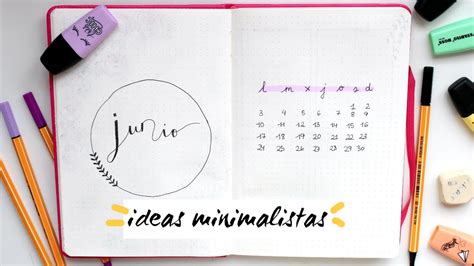 junio
l m x j v s d
1 2
3 4 5 6 7 8 9
10 11 12 13 14 15 16
17 18 19 20 21 22 23
24 25 26 27 28 29 30
ideas minimalistas